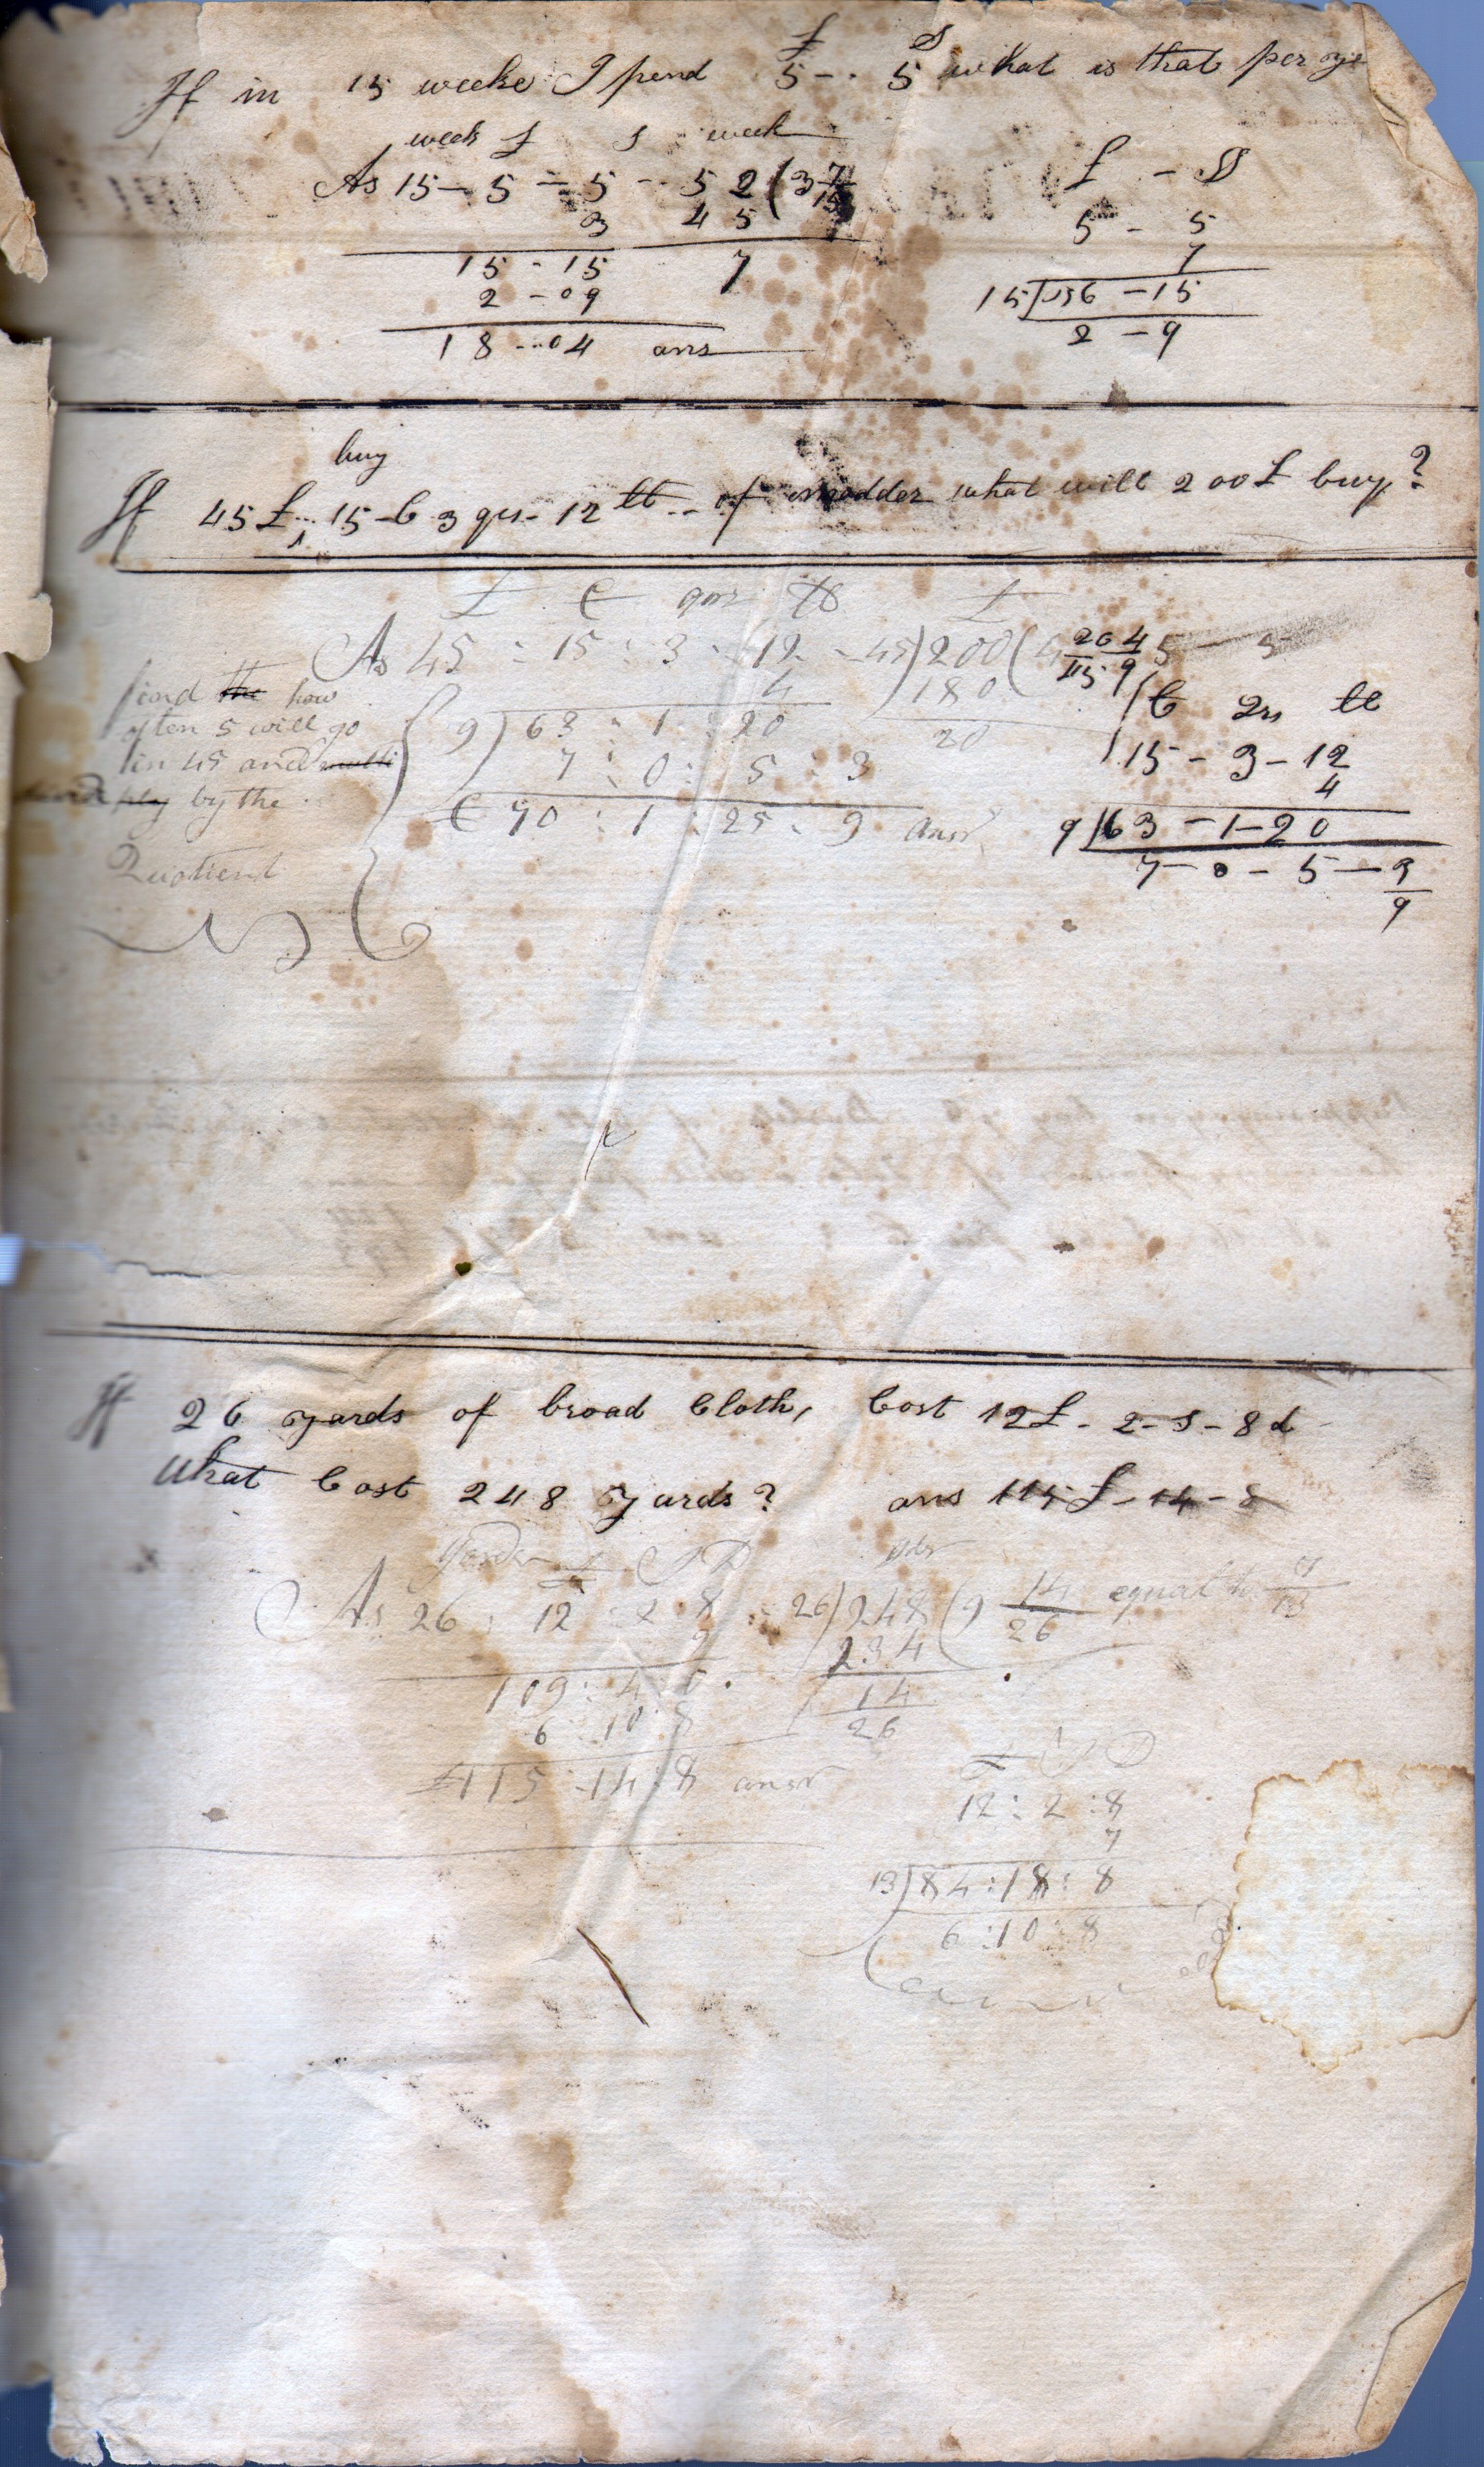 £ S
If in 15 weeks I spend 5 - 5 what is that per
week £ s week
As 15 - 5 - 5 - 52 (3 7/15
3 45
15 - 15 7
2 - 09
18 - 04 ans
£ - S
5 - 5
7
15) 36 - 15
2 - 9
buy
If 45£ 15 - C 3 qrs - 12 lb - of madder what will 200£ buy?
£ C qrs lb £
As 45 : 15 : 3 : 12 - 45)200(4
4 180
9) 63 : 1 : 20 20
7 : 0 : 5 : 3
C 70 : 1 : 25 : 9 ansr
find the how
often 5 will go
in 45 and multi
ply by the
Quotient
20 4
45 9
C Qrs lb
15 - 3 - 12
4
9) 63 - 1 - 20
7 - 0 - 5 - 3/9
If 26 yards of broad Cloth, Cost 12£ - 2 - S - 8 d
what Cost 248 yards? ans 115£ - 14 - 8
Yards £ S D yds
As 26 : 12 : 2 : 8 - 26)248(9 14/26 equal to 7/13
9 234
109 : 4 : 0 14
6 : 10 : 8 26
£115 : 14 : 8 ansr
£ S D
12 : 2 : 8
7
13) 84 : 18 : 8
6 : 10 : 8